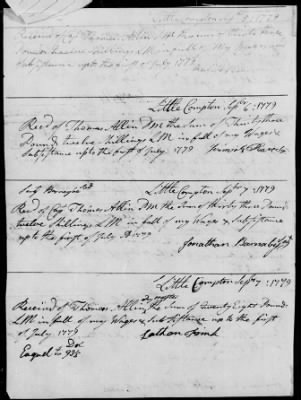 Little Compton Sepr 7 1779
Receivd of Capt Thomas Allin Pr Me the Sum of thirty three
Pounds twelve Shillings LM in full of My Wages &
Subsistance up to the first of July 1779
Little Compton Sepr 7 1779
Recd of Thomas Allin PM the Sum of Thirty three
Pound twelve Shillings LM in full of my Wages &
Subsistance upto the first of July 1779
Little Compton Sepr 7 1779
Recd of Capt Thomas Allin PM the Sum of thirty three Pound
twelve Shillings LM in full of my Wages & Subsistance
up to the first of July AD 1779
Jonathan
Little Compton Sepr 7: 1779
Receivd of Thomas Allin the Sum of twenty Eight Pound
LM in full of my Wages & Subsistance up to the first
of July 1779
Equel to